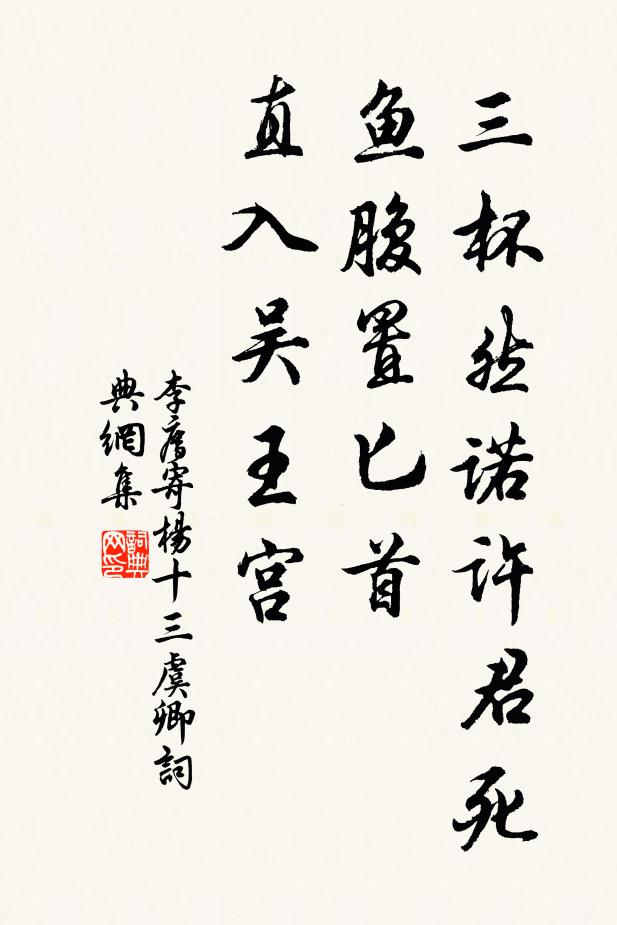 三杯然诺许君死
鱼腹置匕首
直入吴王宫
李廌寄楊十三虞卿詞
典網集
詞典
网印